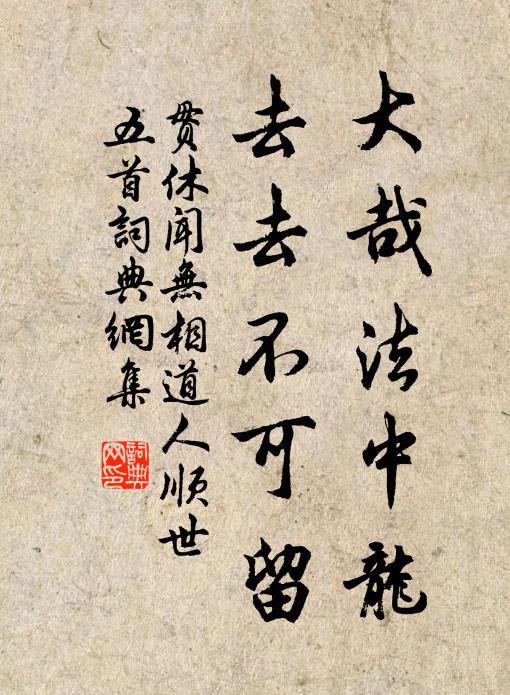 大哉法中龍
去去不可留
貫休聞無相道人順世
五首詞典網集
詞典
网印